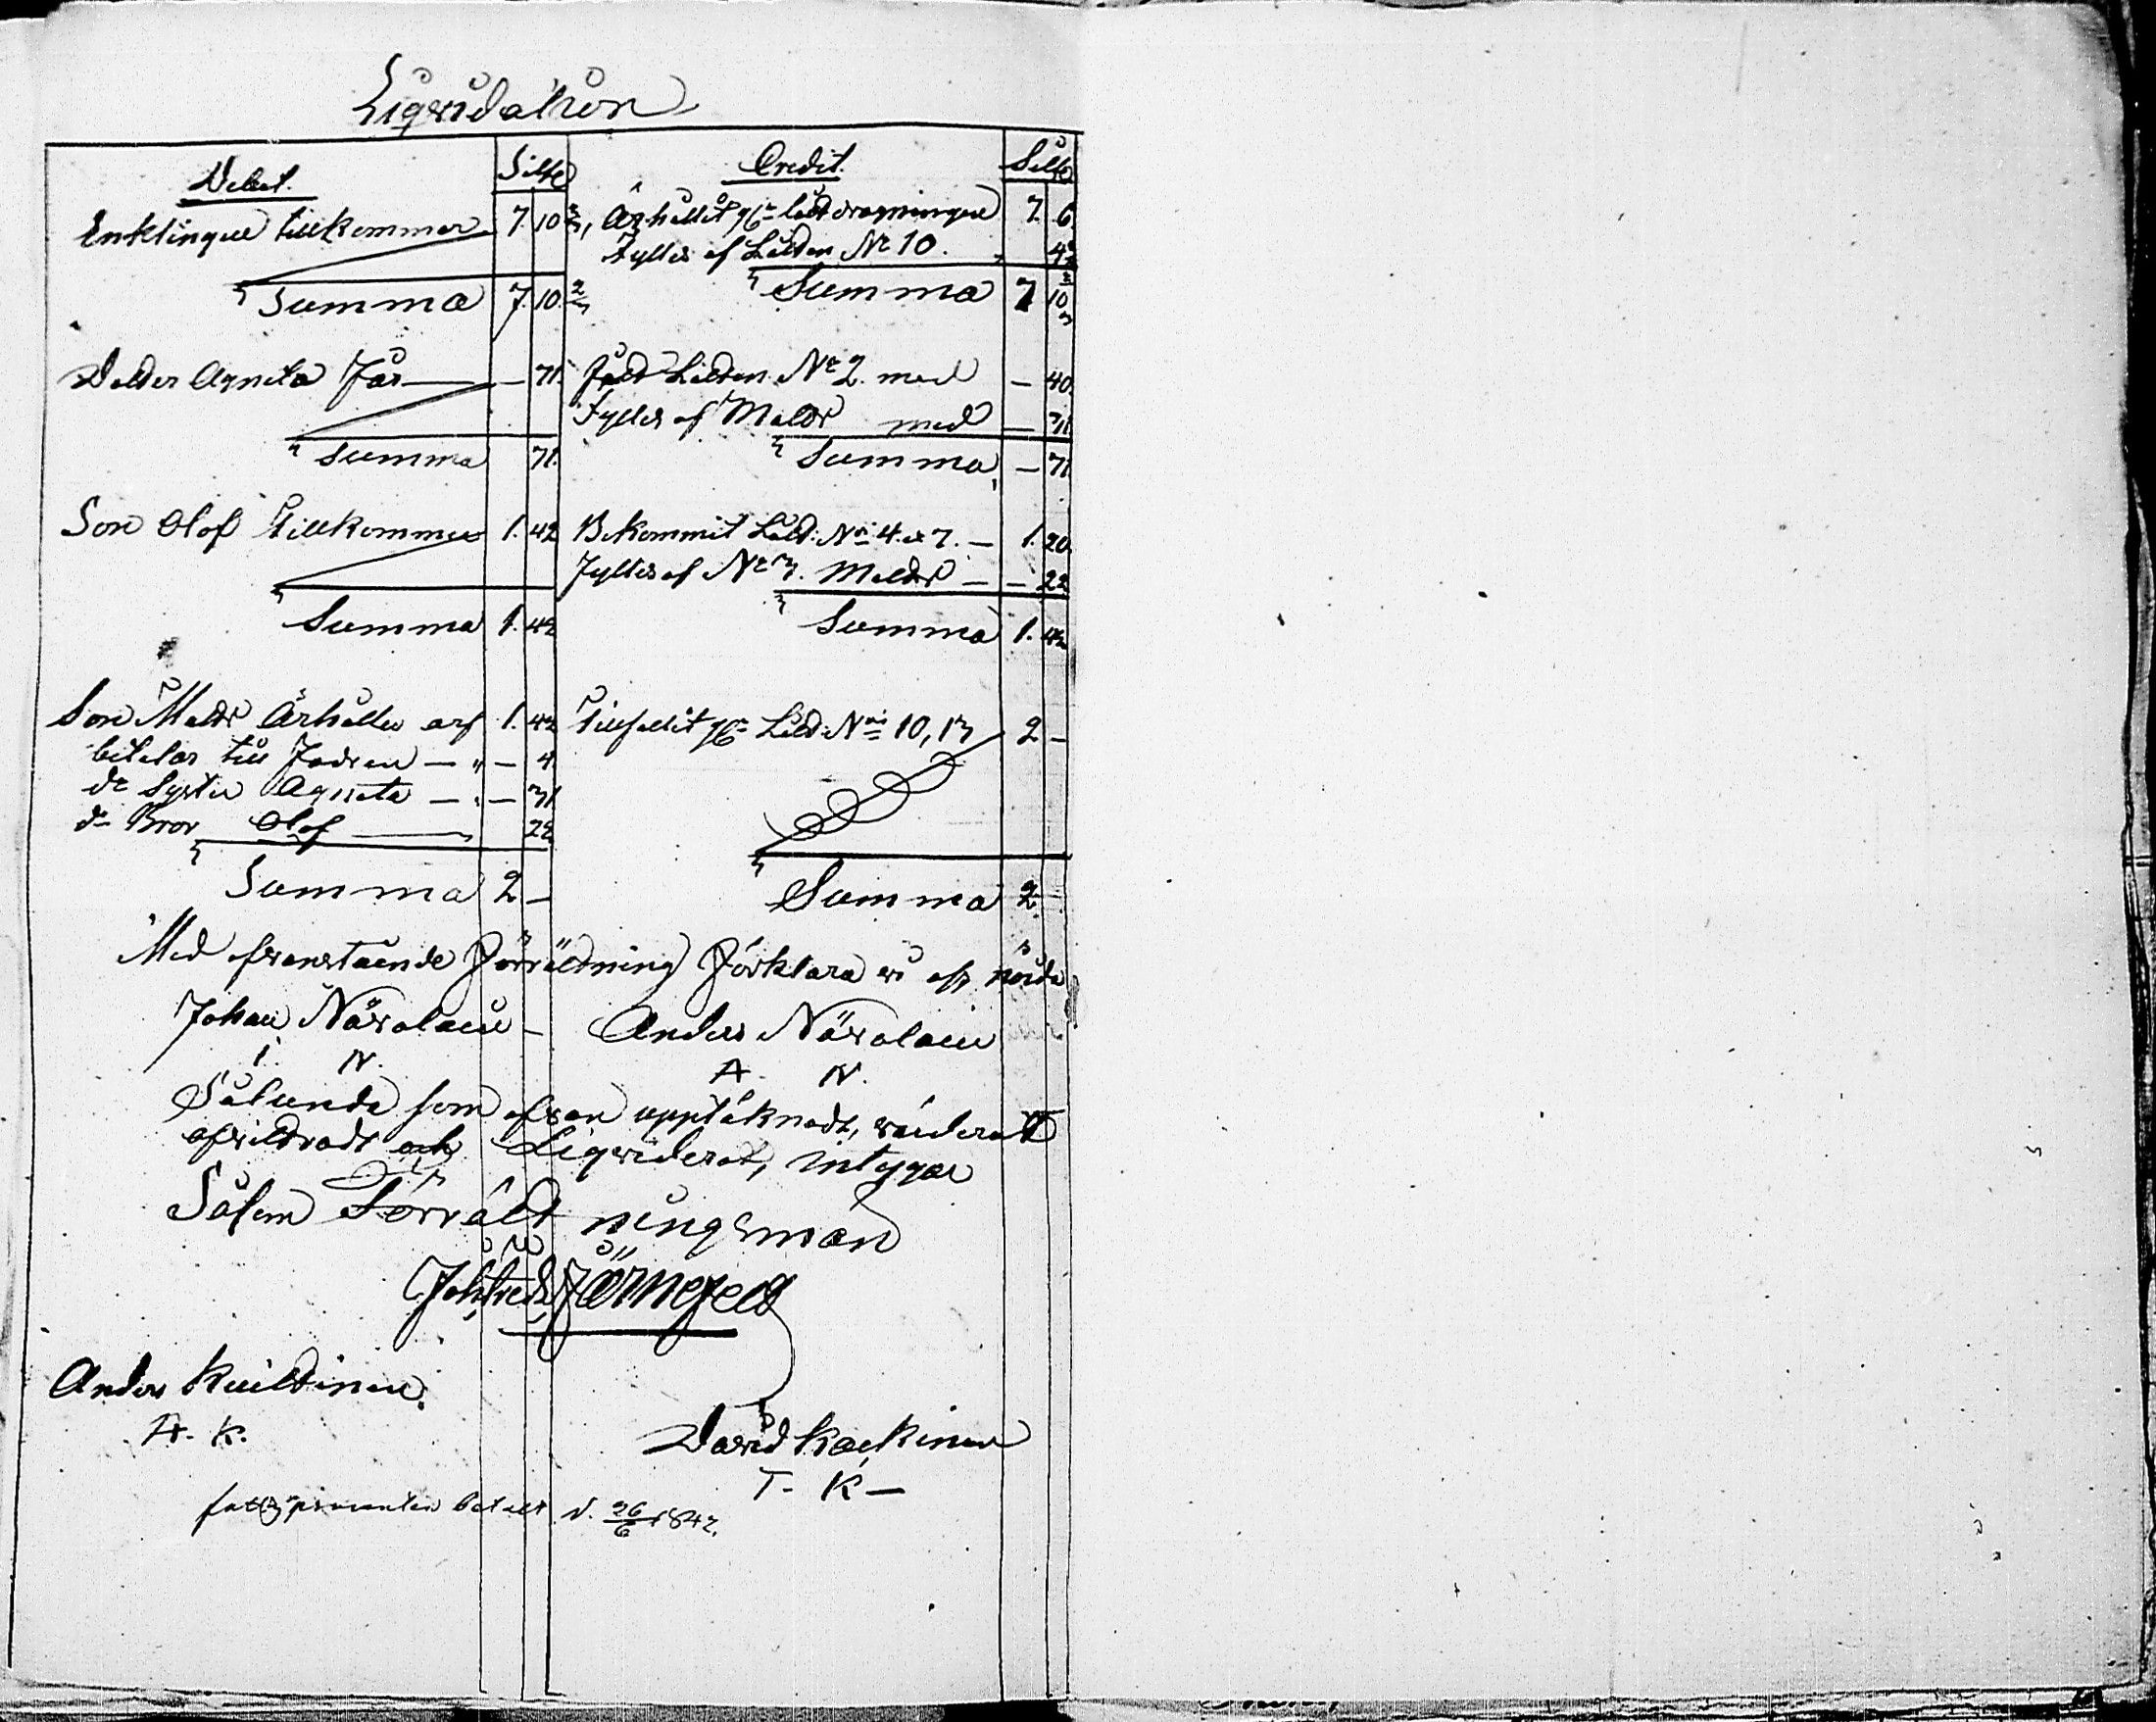 Liqvidation
Debet. Silfr Credit. Silfr
Enklingen tillkommer 7. 10 2/3, Ärhållit pr lottdragningen 7. 6.
Fylles af Lotten No 10. 4 2/3
Summa 7. 10. 2/3 Summa 7 10 2/3
Dotter Agneta Får — 71. Föld Lotten No 2. med — 40.
Fylles af Matts med — 31.
Summa 71. Summa — 71.
Son Olof Tillkommer 1. 42 Bekommit Lott: No 4. & 7. — 1. 20.
Fylles af No 3. Matts — — 22
Summa 1. 42 Summa 1. 42
Son Matts Ärhåller arf 1. 42 Tillfallit pr Lott: No 10, 13 2 —
betalar till Fadren — " — 4.
do Syster Agneta — " — 31
do Bror Olof — 22
Summa 2 — Summa 2. —
Med ofvanstående Förrättning Förklara vi oss nöida
Johan Növolain — Anders Növolain
I. N. A. N.
Sålunda som ofvan upptäknadt, värderat
afvittradt och Liqviderat, intygar
Såsom Förrättningsman
Joh: Fredr: Järnefelt
Anders Kuittinen.
A. K.
David Kackinen
T. K —
fattigprocenten betalt d. 26/6 1842.